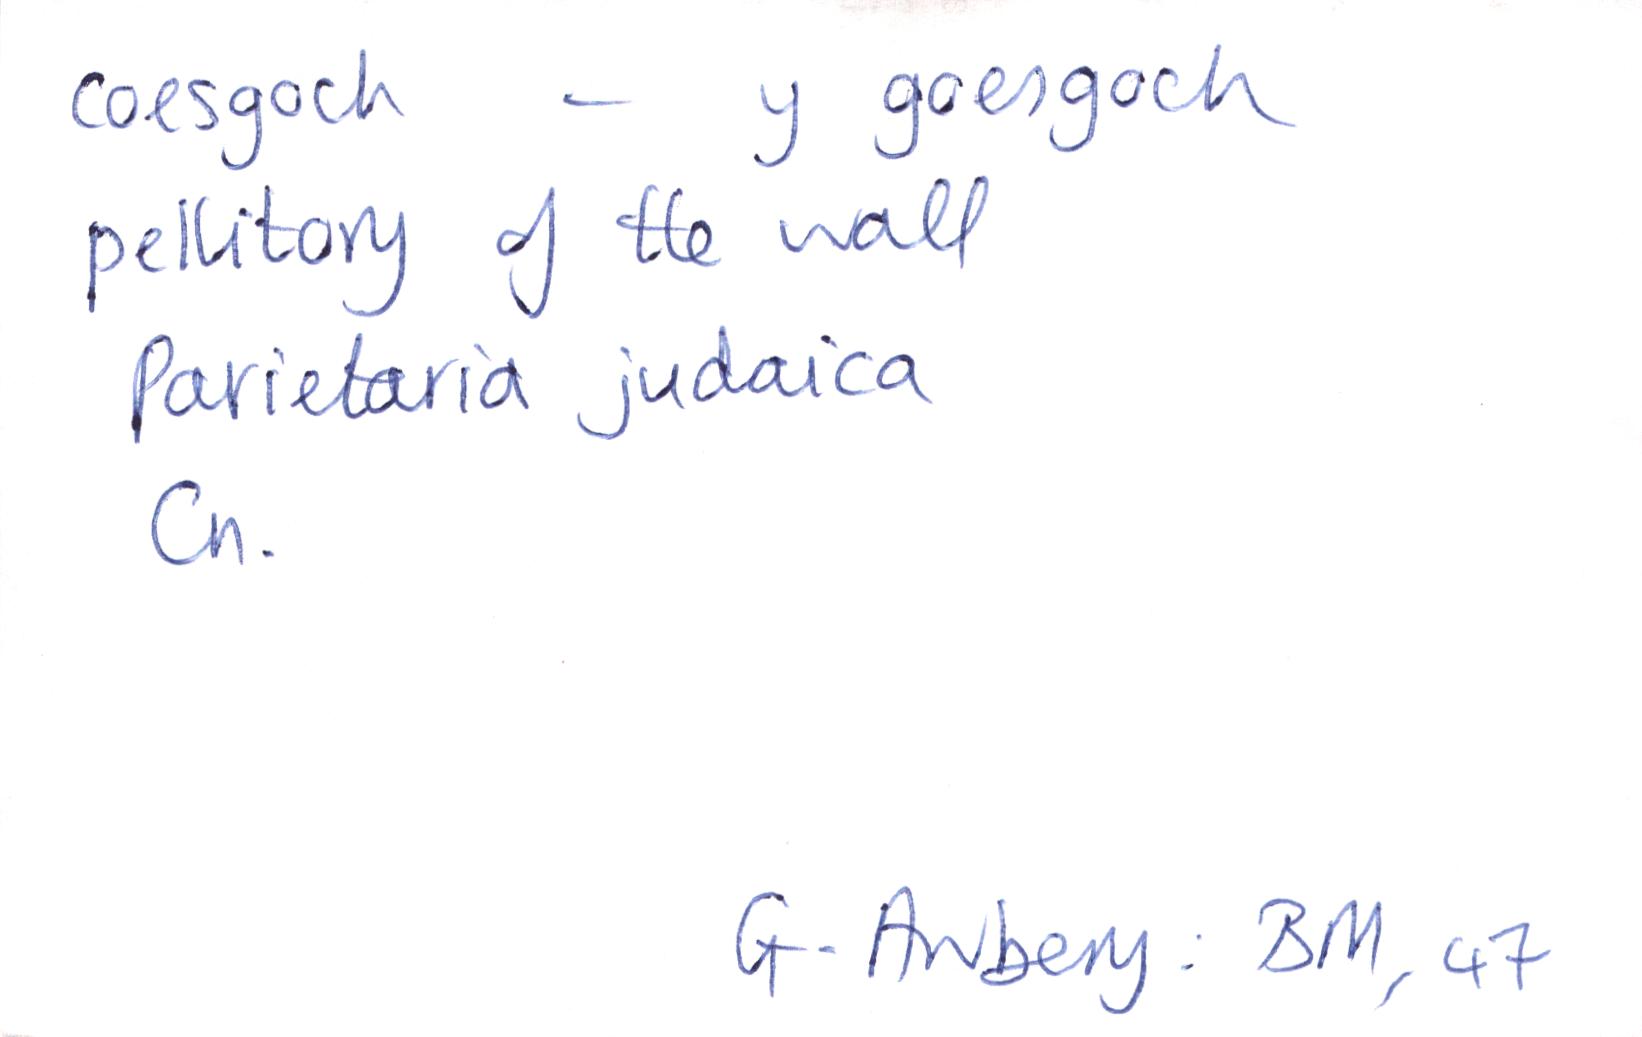 coesgoch – y goesgoch
pellitory of the wall
Parietaria judaica
Cn.
G. Awbery: BM, 47